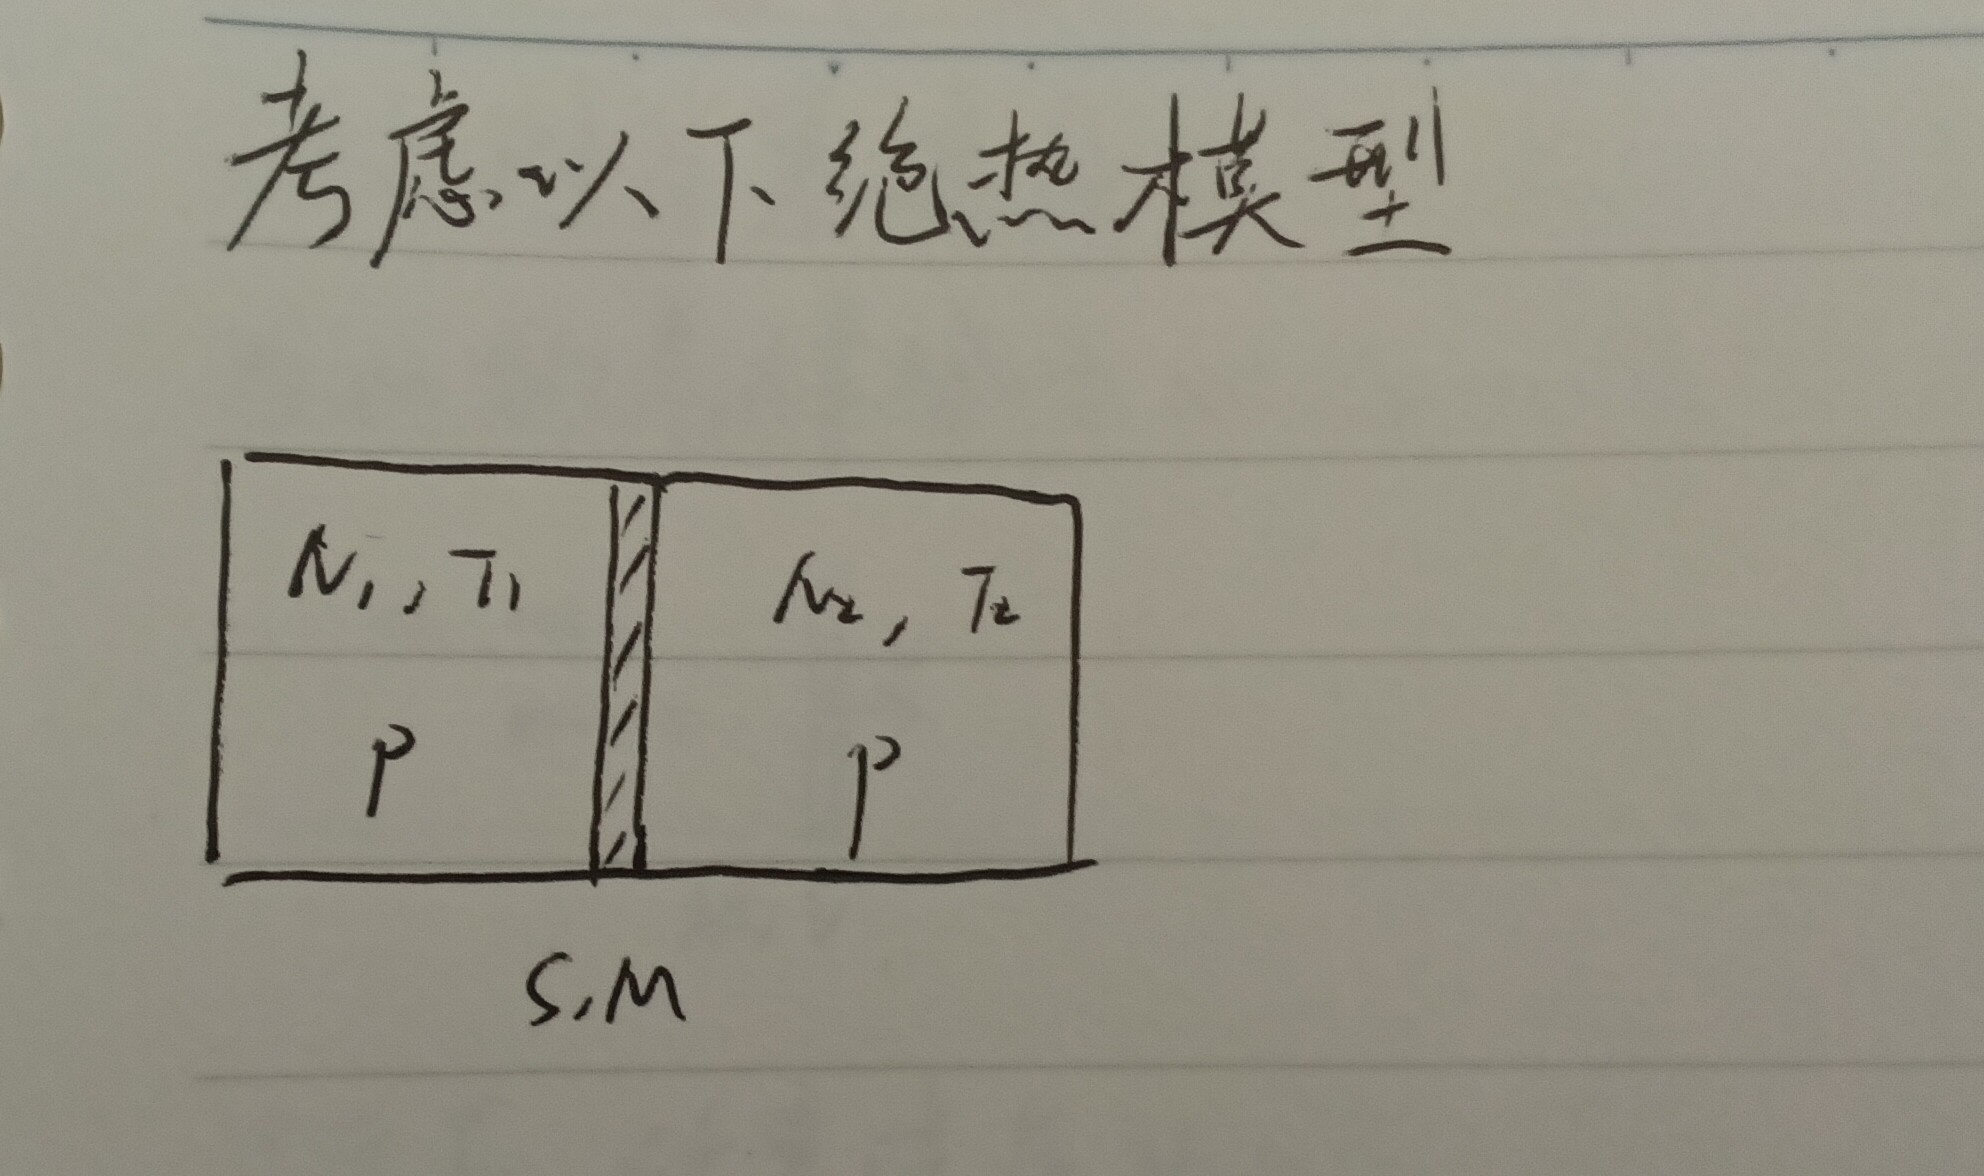 考虑以下绝热模型
N₁, T₁ N₂, T₂
P P
S, M